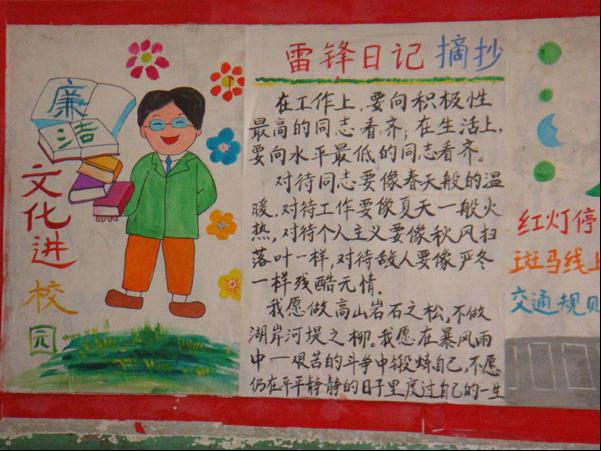 廉
洁
文化进校园
雷锋日记摘抄
在工作上,要向积极性
最高的同志看齐;在生活上,
要向水平最低的同志看齐。
对待同志要像春天般的温
暖,对待工作要像夏天一般火
热,对待个人主义要像秋风扫
落叶一样,对待敌人要像严冬
一样残酷无情.
我愿做高山岩石之松,不做
湖岸河堤之柳。我愿在暴风雨
中一艰苦的斗争中锻炼自己,不愿
仍在平平静静的日子里度过自己的一生
红灯停
斑马线上
交通规则